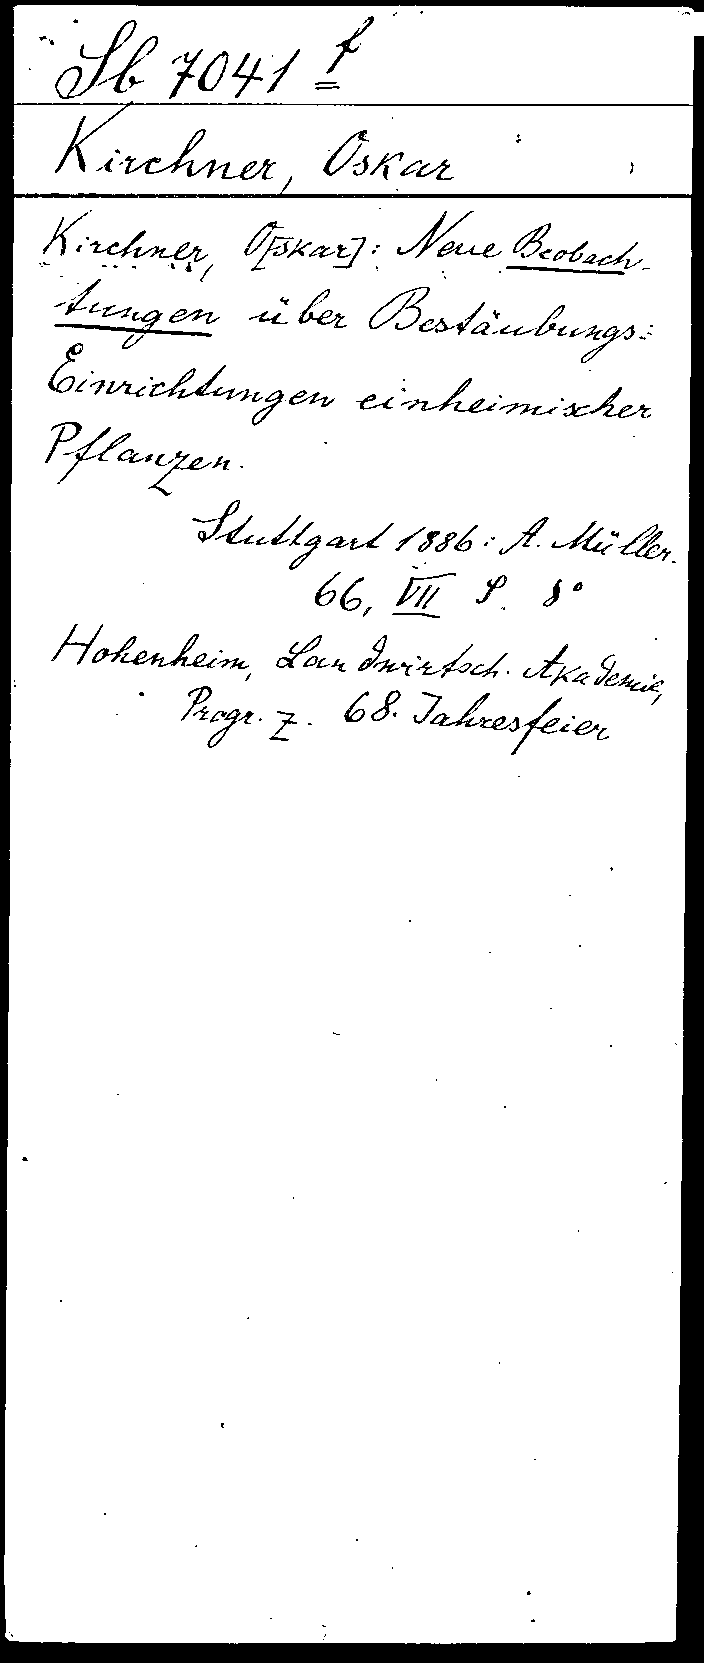 Sb 7041 f
Kirchner, Oskar
Kirchner, O[skar]: Neue Beobach-
tungen über Bestäubungs-
Einrichtungen einheimischer
Pflanzen.
Stuttgart 1886: A. Müller.
66, VII S. 8°
Hohenheim, Landwirtsch. Akademie,
Progr. z. 68. Jahresfeier